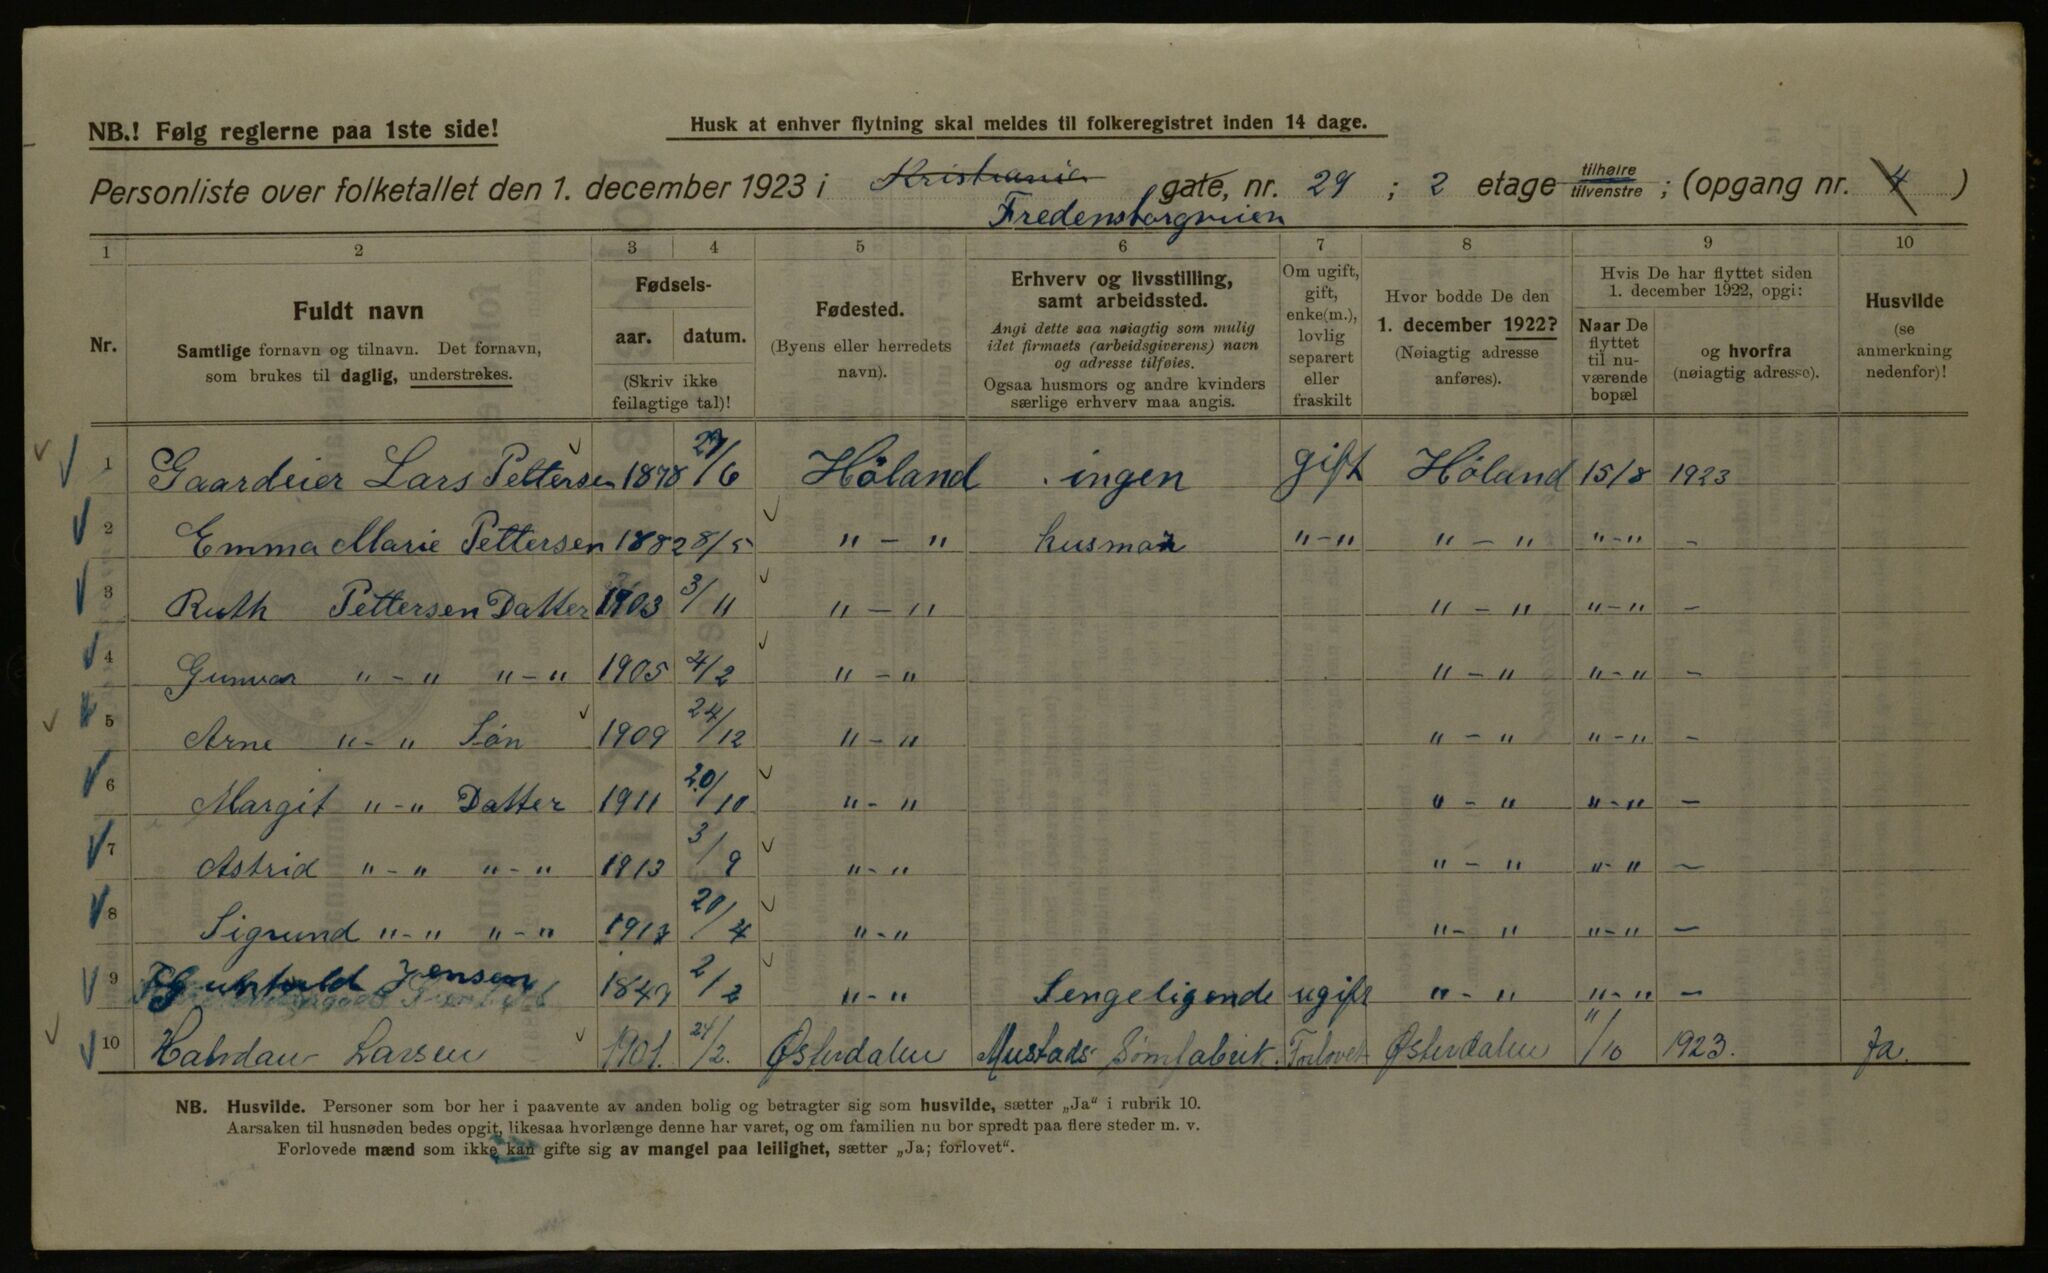 NB.! Følg reglerne paa 1ste side!
Husk at enhver flytning skal meldes til folkeregistret inden 14 dage.
Personliste over folketallet den 1. december 1923 i Kristiania gate, nr. 29 ; 2 etage tilhøire tilvenstre ; (opgang nr. 4 )
Fredensborgveien
1 2 3 4 5 6 7 8 9 10
Nr.
Fuldt navn
Samtlige fornavn og tilnavn. Det fornavn,
som brukes til daglig, understrekes.
Fødsels-
aar. datum.
(Skriv ikke
feilagtige tal)!
Fødested.
(Byens eller herredets
navn).
Erhverv og livsstilling,
samt arbeidssted.
Angi dette saa nøiagtig som mulig
idet firmaets (arbeidsgiverens) navn
og adresse tilføies.
Ogsaa husmors og andre kvinders
særlige erhverv maa angis.
Om ugift,
gift,
enke(m.),
lovlig
separert
eller
fraskilt
Hvor bodde De den
1. december 1922?
(Nøiagtig adresse
anføres).
Hvis De har flyttet siden
1. december 1922, opgi:
Naar De
flyttet
til nu-
værende
bopæl
og hvorfra
(nøiagtig adresse).
Husvilde
(se
anmerkning
nedenfor)!
1 Gaardeier Lars Pettersen 1878 27/6 Höland ingen gift Höland 15/8 1923
2 Emma Marie Pettersen 1882 8/5 " - " husmor " - " " - " " - " -
3 Ruth Pettersen Datter 1903 3/11 " - " " - " " - " -
4 Gunvor " - " " - " 1905 4/2 " - " " - " " - " -
5 Arne " - " Sön 1909 24/12 " - " " - " " - " -
6 Margit " - " Datter 1911 20/10 " - " " - " " - " -
7 Astrid " - " " - " 1913 3/9 " - " " - " " - " -
8 Sigrund " - " " - " 20/4 " - " " - " " - " -
9 Jensen 1847 2/2 " - " Sengeligende ugift " - " " - " -
10 Halvdan Larsen 1901. 24/2. Østerdalen Mustads Sømfabrik. Forlovet Østerdalen "/10 1923. Ja.
NB. Husvilde. Personer som bor her i paavente av anden bolig og betragter sig som husvilde, sætter „Ja" i rubrik 10.
Aarsaken til husnøden bedes opgit, likesaa hvorlænge denne har varet, og om familien nu bor spredt paa flere steder m. v.
Forlovede mænd som ikke kan gifte sig av mangel paa leilighet, sætter „Ja; forlovet".